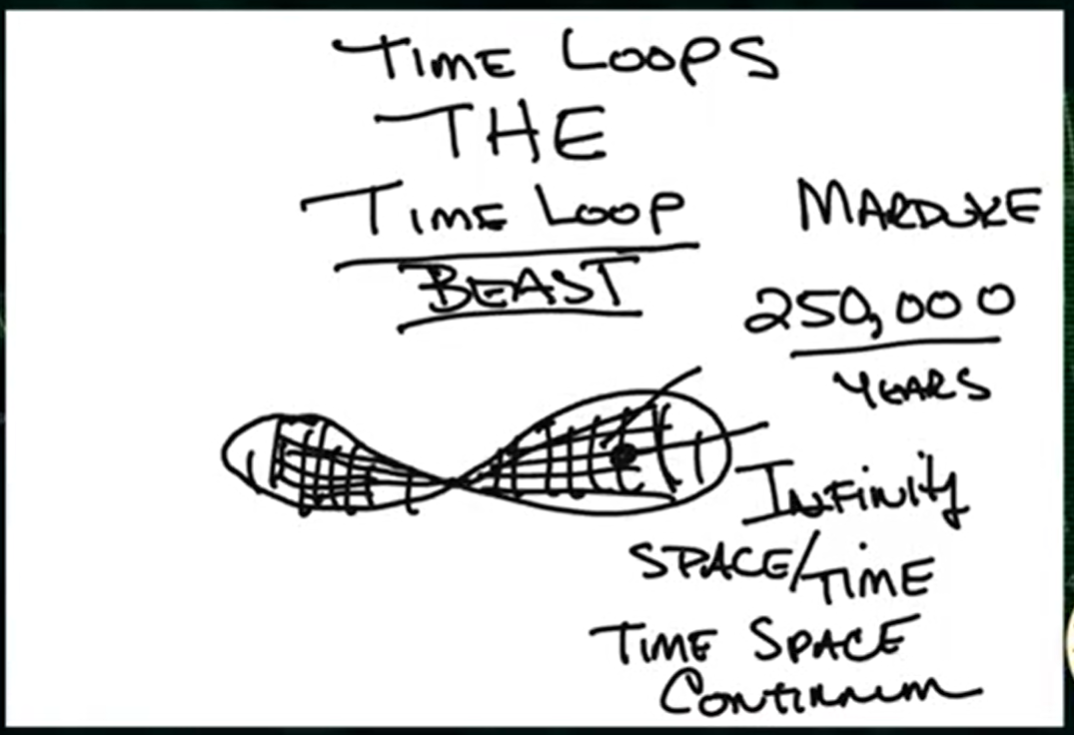 TIME LOOPS
THE
TIME LOOP
BEAST
MARDUKE
250,000
YEARS
INFINITY
SPACE/TIME
TIME SPACE
CONTINNUM